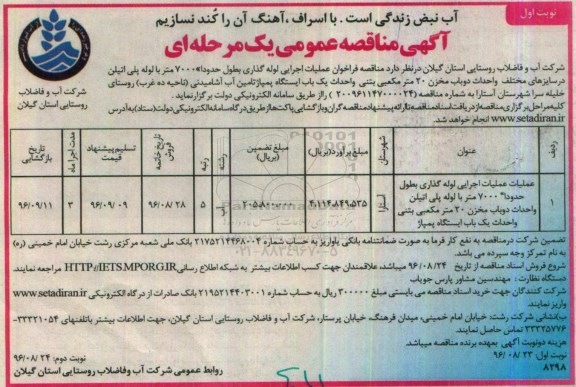 نوبت اول
آب نبض زندگی است . با اسراف ،آهنگ آن را کُند نسازیم
آگهی مناقصه عمومی یک مرحله ای
شرکت آب و فاضلاب
روستایی استان گیلان
شرکت آب و فاضلاب روستایی استان گیلان درنظر دارد مناقصه فراخوان عملیات اجرایی لوله گذاری بطول حدودا" ۷۰۰۰ متر با لوله پلی اتیلن
درسایزهای مختلف واحداث دوباب مخزن ۲۰ متر مکعبی بتنی واحداث یک باب ایستگاه پمپاژ تامین آب آشامیدنی (ناحیه ده غرب) روستای
خلیفه سرا شهرستان آستارا به شماره مناقصه (۲۰۰۹۶۱۱۴۷۰۰۰۰۲۴) را از طریق سامانه الکترونیکی دولت برگزار نماید.
کلیه مراحل برگزاری مناقصه از دریافت اسناد مناقصه تا ارائه پیشنهاد مناقصه گران و بازگشایی پاکت ها از طریق درگاه سامانه الکترونیکی دولت (ستاد) به آدرس
www.setadiran.ir انجام خواهد شد.
ردیف | عنوان | شهرستان | مبلغ برآورد (ریال) | مبلغ تضمین (ریال) | رشته | رتبه | تاریخ خاتمه فروش | تسلیم پیشنهاد قیمت | مدت اجرا ماه | تاریخ بازگشایی
۱ | عملیات عملیات اجرایی لوله گذاری بطول حدودا" ۷۰۰۰ متر با لوله پلی اتیلن واحداث دوباب مخزن ۲۰ متر مکعبی بتنی واحداث یک باب ایستگاه پمپاژ | آستارا | ۴۰۱۱۴۰۸۴۹۰۵۳۵ | ۲۰۵۸۰۰۰۰۰ | آب | ۵ | ۹۶/۰۸/۲۸ | ۹۶/۰۹/۰۹ | ۳ | ۹۶/۰۹/۱۱
تضمین شرکت درمناقصه به نفع کار فرما به صورت ضمانتنامه بانکی یاواریز به حساب شماره ۲۱۷۵۲۱۴۴۶۸۰۰۴ بانک ملی شعبه مرکزی رشت خیابان امام خمینی (ره)
به نام تمرکز وجه سپرده می باشد.
شروع فروش اسناد مناقصه از تاریخ ۹۶/۰۸/۲۴ میباشد، علاقمندان جهت کسب اطلاعات بیشتر به شبکه اطلاع رسانی HTTP//IETS.MPORG.IR مراجعه نمایند.
دستگاه نظارت : مهندسین مشاور پارس جویاب
شرکت کنندگان جهت خرید اسناد مناقصه می بایستی مبلغ ۳۰۰۰۰۰ ریال به حساب شماره ۲۱۹۵۲۱۴۴۰۳۰۰۱ بانک صادرات از درگاه الکترونیکی www.setadiran.ir
واریز نمایند.
ب)نشانی شرکت: رشت، خیابان امام خمینی، میدان فرهنگ، خیابان پرستار، شرکت آب و فاضلاب روستایی استان گیلان، جهت اطلاعات بیشتر باتلفنهای ۳۳۳۲۱۰۵۴-
۳۳۳۲۵۷۷۶ تماس حاصل نمایند.
هزینه دونوبت آگهی بعهده برنده مناقصه میباشد.
نوبت اول: ۹۶/۰۸/۲۳
نوبت دوم: ۹۶/۰۸/۲۴
۸۲۹۸
روابط عمومی شرکت آب وفاضلاب روستایی استان گیلان